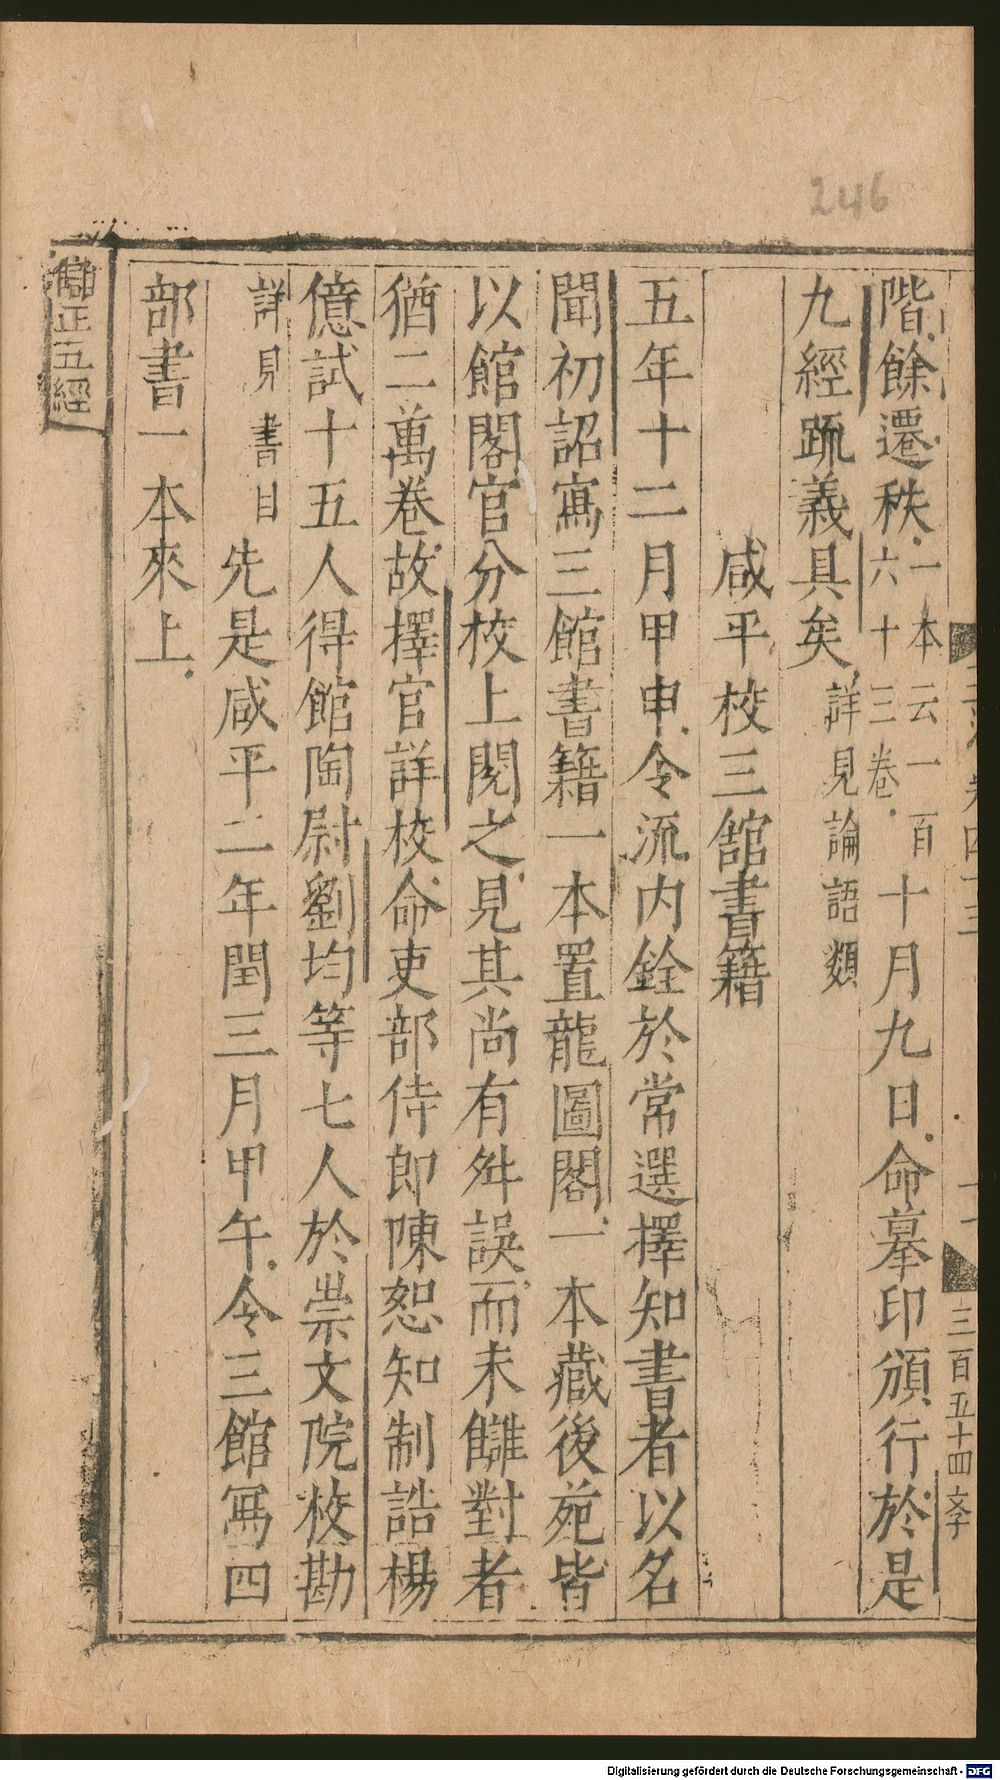 246
階餘遷秩一本云一百六十三卷十月九日命摹印頒行於是
九經䟽義具矣詳見論語類
咸平校三舘書籍
五年十二月甲申令流内銓於常選擇知書者以名
聞初詔寫三館書籍一本置龍圖閣一本藏後苑皆
以館閣官分校上閱之見其尚有舛誤而未讎對者
猶二萬卷故擇官詳校命吏部侍郎陳恕知制誥楊
億試十五人得館陶尉劉均等七人於崇文院校勘
詳見書目先是咸平二年閏三月甲午令三館寫四
部書一本來上
讎正五經
三百五十四
Digitalisierung gefördert durch die Deutsche Forschungsgemeinschaft - DFG